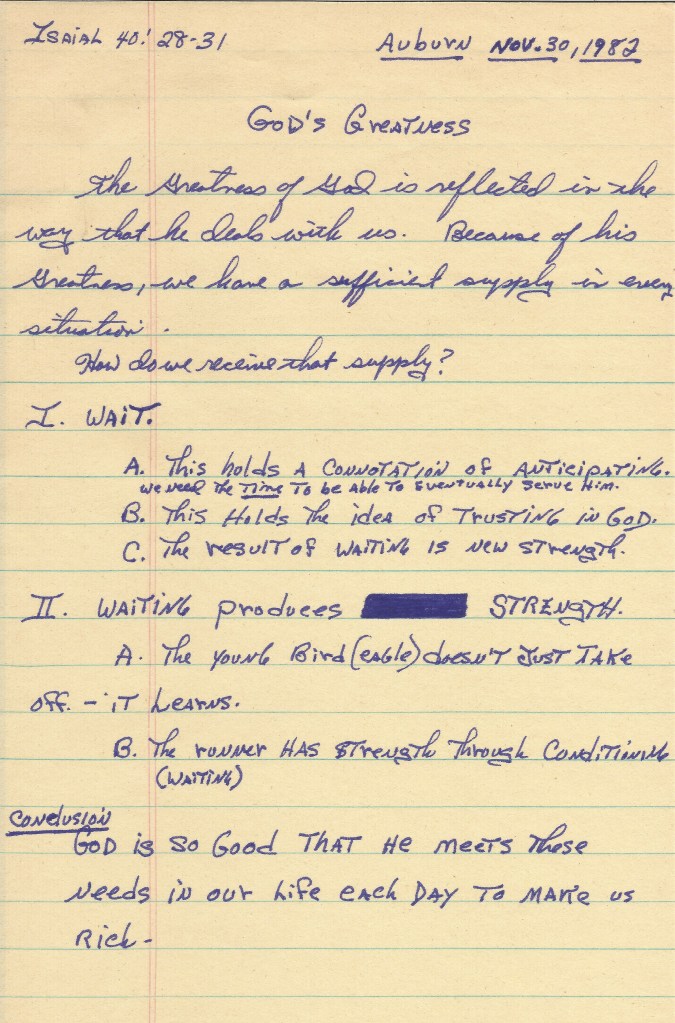 Isaiah 40: 28-31
Auburn Nov. 30, 1982
God's Greatness
The Greatness of God is reflected in the
way that he deals with us. Because of his
Greatness, we have a sufficient supply in every
situation.
How do we receive that supply?
I. Wait.
A. This holds a connotation of anticipating.
We need the Time to be able to eventually serve Him.
B. This Holds the idea of Trusting in God.
C. The result of waiting is new strength.
II. Waiting produces STRENGTH.
A. The young Bird (eagle) doesn't Just Take
off. - it Learns.
B. The runner has strength through Conditioning
(Waiting)
Conclusion
God is so Good That He meets These
needs in our Life each Day To make us
Rich-